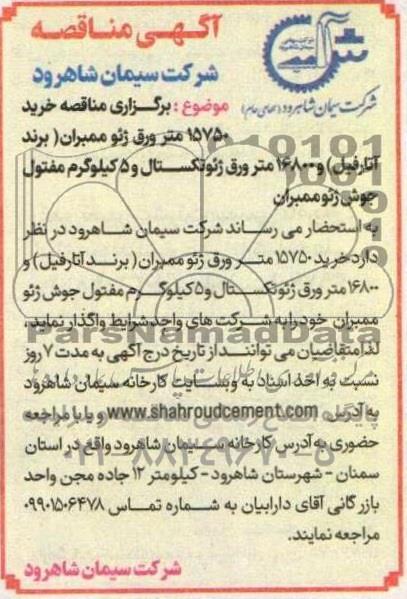 آگهی مناقصه
شرکت سیمان شاهرود
شرکت سیمان شاهرود (سهامی عام)
موضوع : برگزاری مناقصه خرید
۱۵۷۵۰ متر ورق ژئو ممبران( برند
آتارفیل) و ۱۶۸۰۰ متر ورق ژئوتکستال و ۵ کیلوگرم مفتول
جوش ژئو ممبران
به استحضار می رساند شرکت سیمان شاهرود در نظر
دارد خرید ۱۵۷۵۰ متر ورق ژئو ممبران ( برند آتارفیل) و
۱۶۸۰۰ متر ورق ژئوتکستال و ۵ کیلوگرم مفتول جوش ژئو
ممبران خود را به شرکت های واجد شرایط واگذار نماید،
لذا متقاضیان می توانند از تاریخ درج آگهی به مدت ۷ روز
نسبت به اخذ اسناد به وبسایت کارخانه سیمان شاهرود
به آدرس www.shahroudcement.com و یا با مراجعه
حضوری به آدرس کارخانه سیمان شاهرود واقع در استان
سمنان - شهرستان شاهرود - کیلومتر ۱۲ جاده مجن واحد
بازرگانی آقای دارابیان به شماره تماس ۰۹۹۰۱۵۰۶۴۷۸
مراجعه نمایند.
شرکت سیمان شاهرود
ParsNamadData
۰۲۱-۸۸۳۴۹۶۷۰-۵